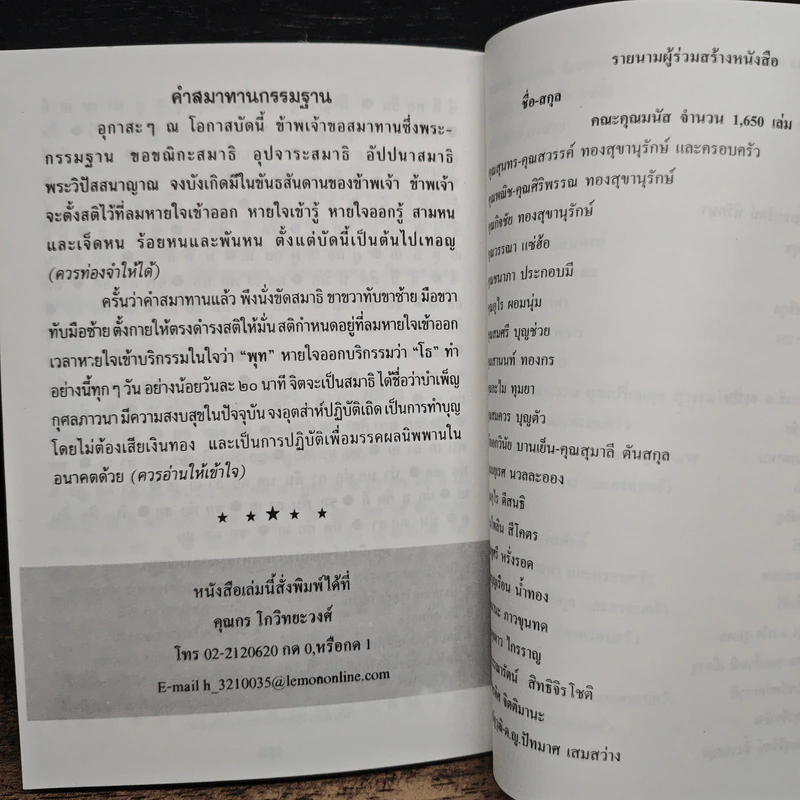 คำสมาทานกรรมฐาน
อุกาสะๆ ณ โอกาสบัดนี้ ข้าพเจ้าขอสมาทานซึ่งพระ-
กรรมฐาน ขอขณิกะสมาธิ อุปจาระสมาธิ อัปปนาสมาธิ
พระวิปัสสนาญาณ จงบังเกิดมีในขันธสันดานของข้าพเจ้า ข้าพเจ้า
จะตั้งสติไว้ที่ลมหายใจเข้าออก หายใจเข้ารู้ หายใจออกรู้ สามหน
และเจ็ดหน ร้อยหนและพันหน ตั้งแต่บัดนี้เป็นต้นไปเทอญ
(ควรท่องจำให้ได้)
ครั้นว่าคำสมาทานแล้ว พึงนั่งขัดสมาธิ ขาขวาทับขาซ้าย มือขวา
ทับมือซ้าย ตั้งกายให้ตรงดำรงสติให้มั่น สติกำหนดอยู่ที่ลมหายใจเข้าออก
เวลาหายใจเข้าบริกรรมในใจว่า “พุท” หายใจออกบริกรรมว่า “โธ” ทำ
อย่างนี้ทุกๆ วัน อย่างน้อยวันละ ๒๐ นาที จิตจะเป็นสมาธิ ได้ชื่อว่าบำเพ็ญ
กุศลภาวนา มีความสงบสุขในปัจจุบัน จงอุตส่าห์ปฏิบัติเถิด เป็นการทำบุญ
โดยไม่ต้องเสียเงินทอง และเป็นการปฏิบัติเพื่อมรรคผลนิพพานใน
อนาคตด้วย (ควรอ่านให้เข้าใจ)
★ ★ ★ ★ ★
หนังสือเล่มนี้สั่งพิมพ์ได้ที่
คุณกร โกวิทยะวงศ์
โทร 02-2120620 กด 0,หรือกด 1
E-mail h_3210035@lemononline.com
รายนามผู้ร่วมสร้างหนังสือ
ชื่อ-สกุล
คณะคุณมนัส จำนวน 1,650 เล่ม
คุณสุนทร-คุณสวรรค์ ทองสุขานุรักษ์ และครอบครัว
คุณพณิช-คุณศิริพรรณ ทองสุขานุรักษ์
คุณกิจชัย ทองสุขานุรักษ์
คุณวรรณา แซ่ฮ้อ
คุณชนาภา ประกอบมี
ผอมนุ่ม
คุณสมศรี บุญช่วย
ทองกร
ทุมยา
บุญตัว
บานเย็น-คุณสุมาลี ตันสกุล
นวลละออง
ดีสนธิ
สีโคตร
หรั่งรอด
น้ำทอง
ภาวขุนทด
ไกรราญ
สิทธิจิรโชติ
จิตติมานะ
ปัทมาศ เสมสว่าง